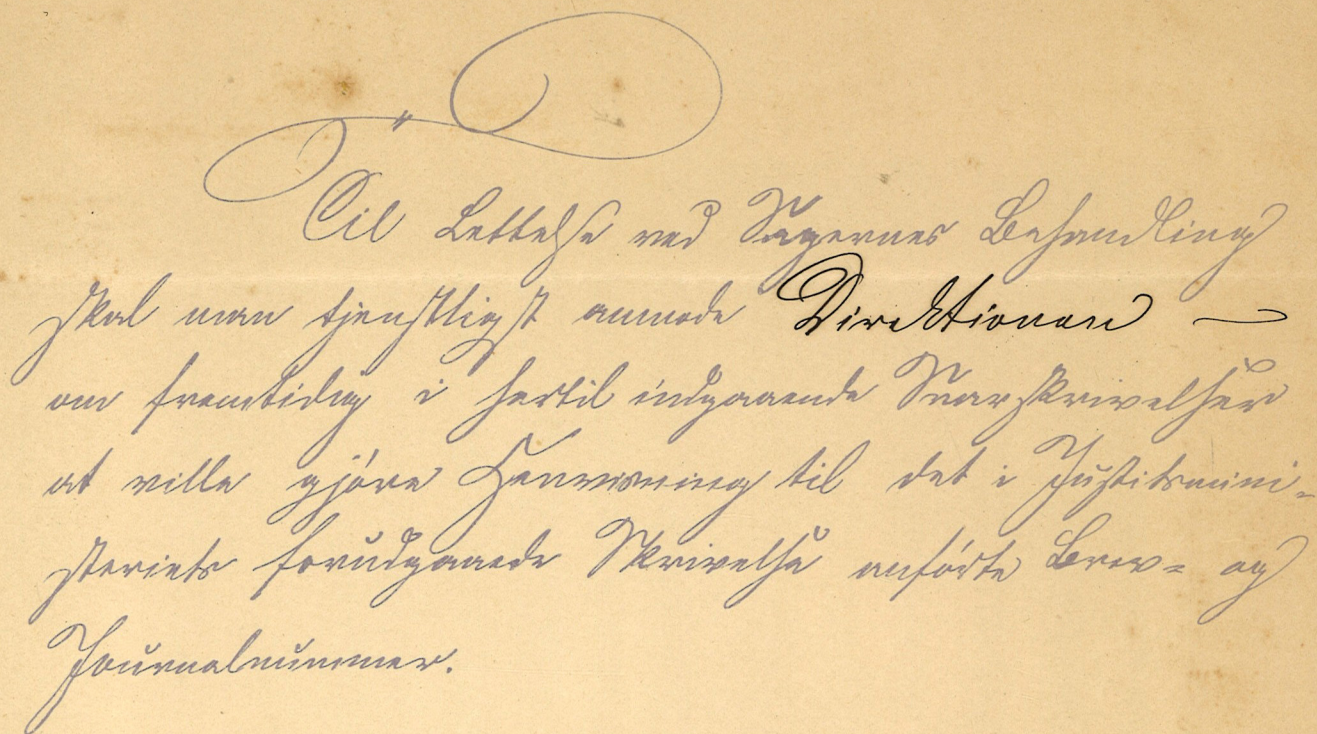 Til Lettelse ved Sagernes Behandling
skal man tjenstligst anmode Direktionen —
om fremtidig i hertil indgaaende Svarskrivelser
at ville gjøre Henvisning til det i Justitsmini-
steriets forudgaaede Skrivelse anførte Brev- og
Journalnummer.